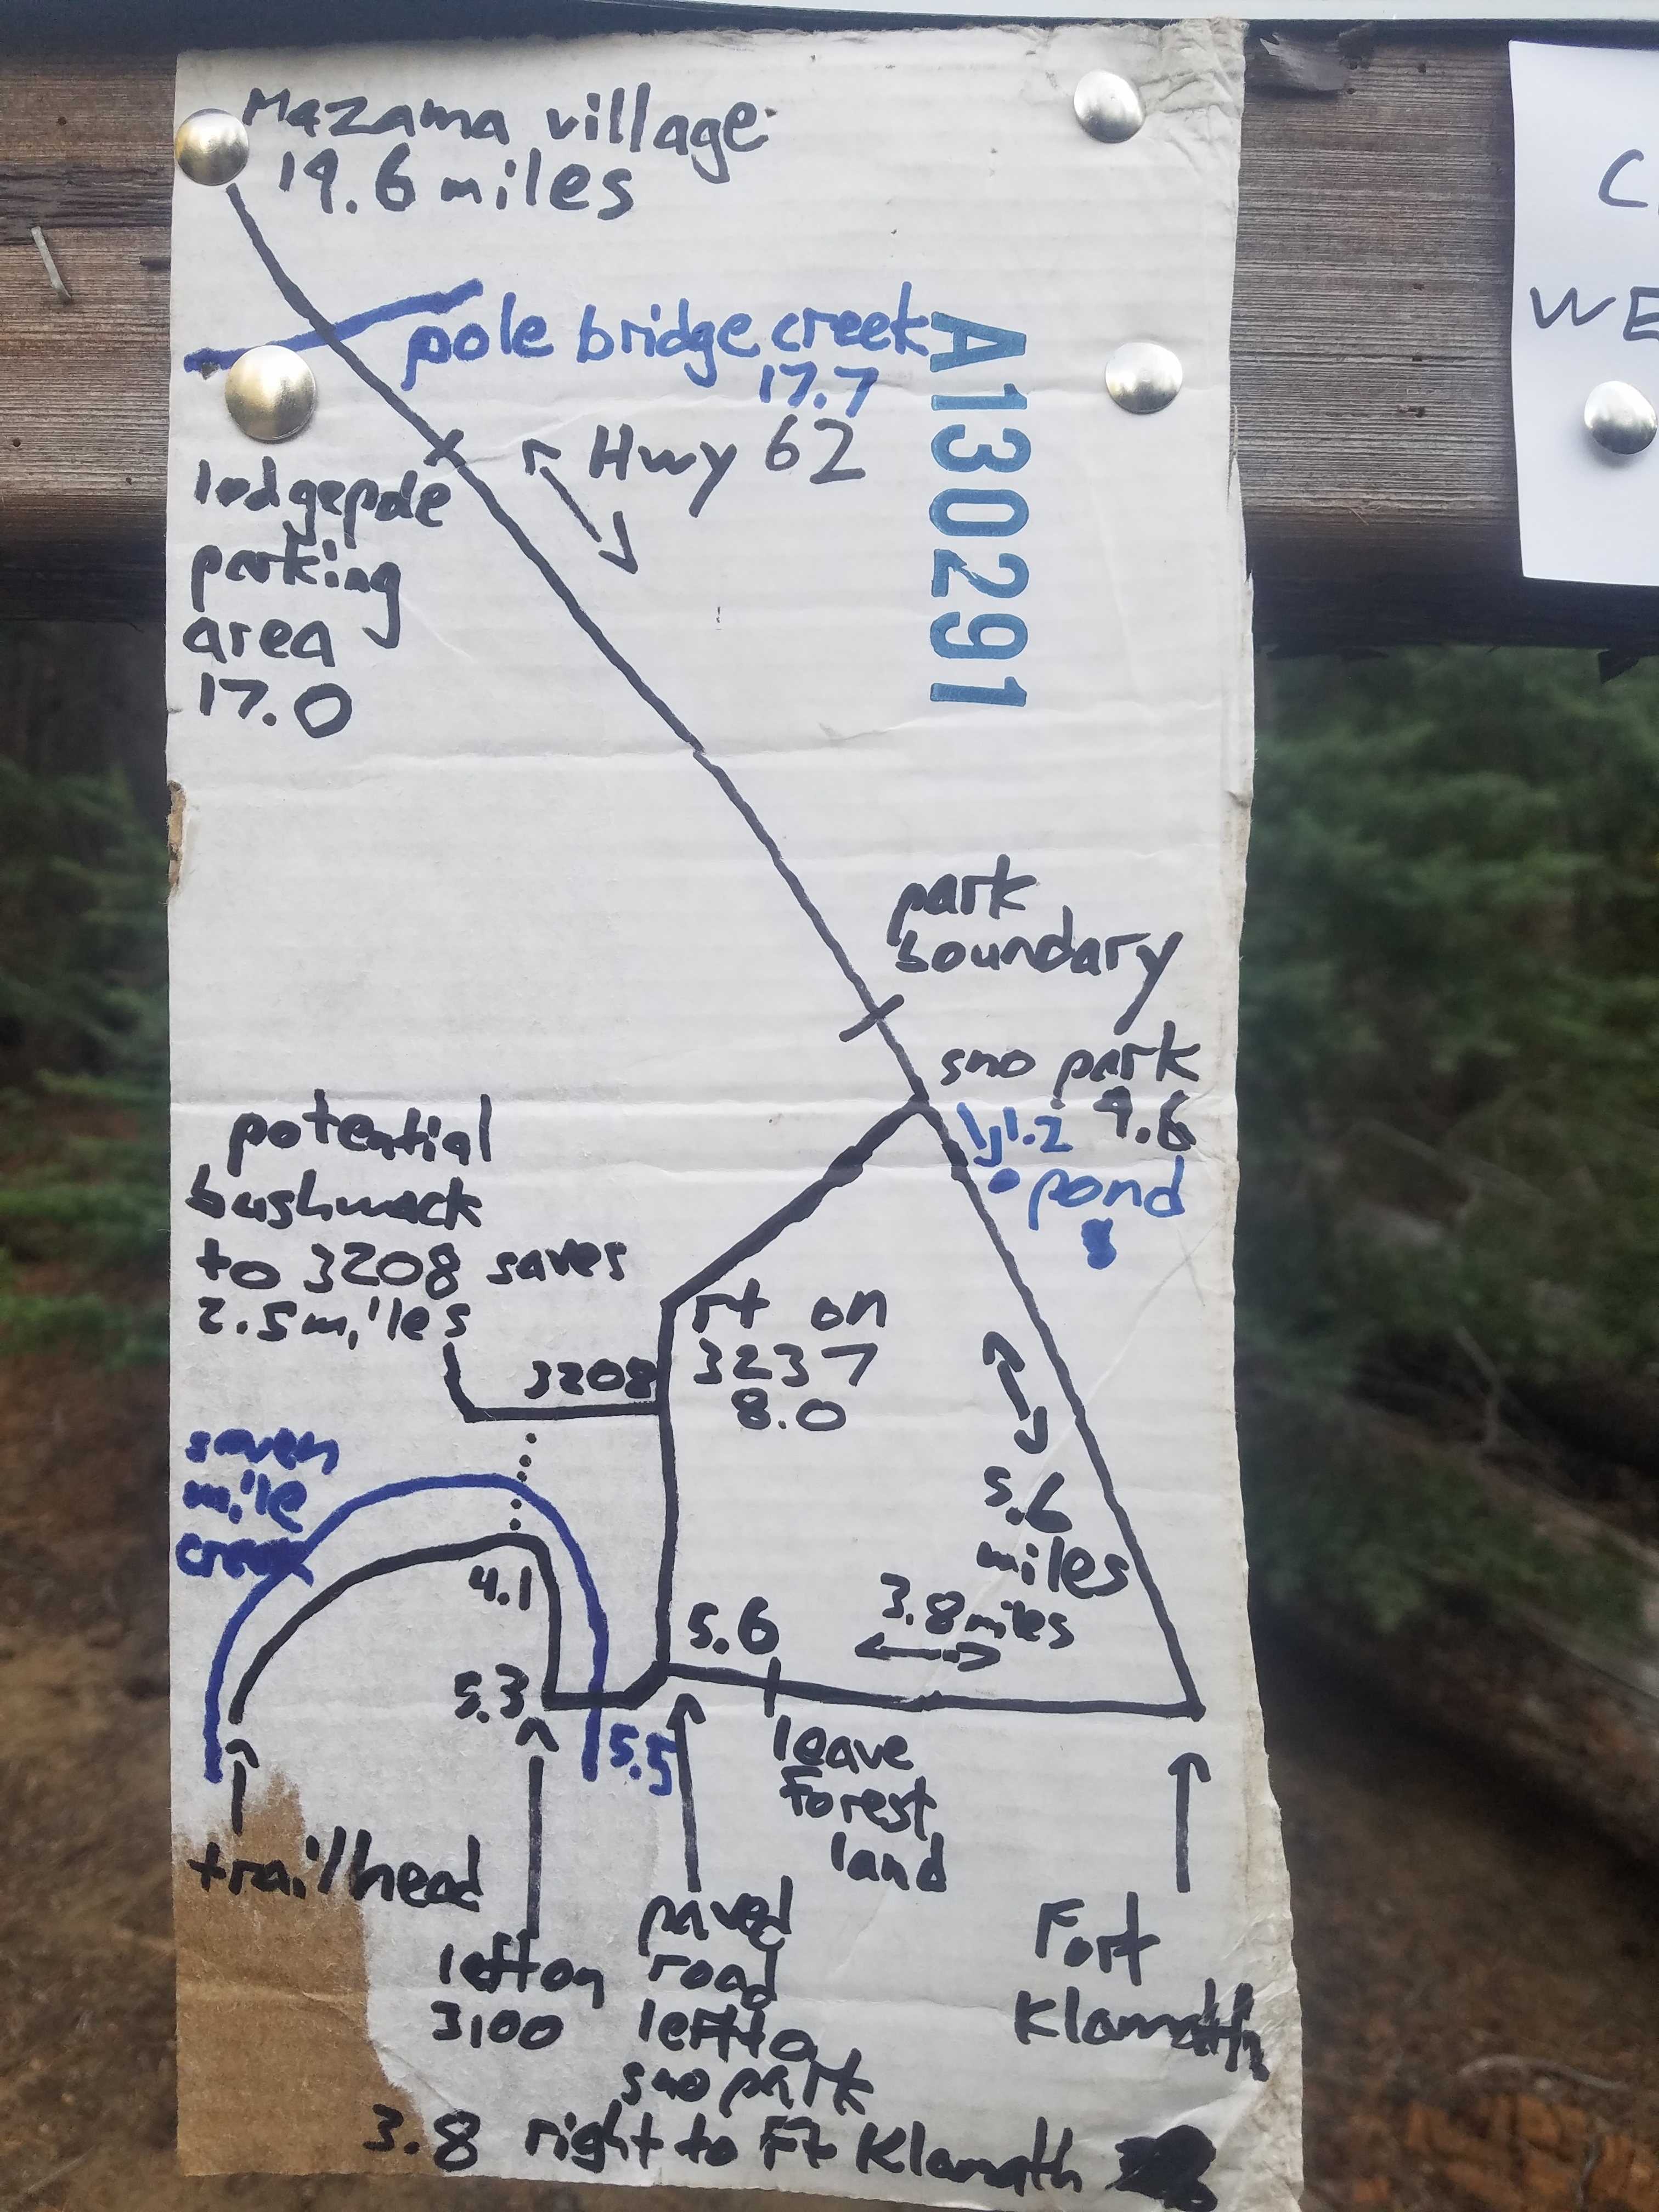 Mazama village
19.6 miles
pole bridge creek
17.7
Hwy 62
A130291
C
WE
lodgepole
parking
area
17.0
park
boundary
sno park
9.6
pond
potential
bushwack
to 3208 saves
2.5 miles
3208
rt on
3237
8.0
seven
mile
creek
4.1
5.6
miles
3.8 miles
5.6
5.3
5.5
leave
forest
land
trailhead
left on
3100
paved
road
left to
sno park
Fort
Klamath
3.8 right to Ft Klamath